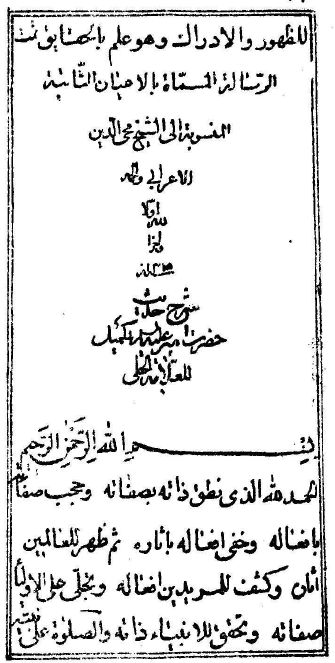 للظهور والادراك وهو علم بالحقايق تمت
الرسالة المسماة بالاعيان الثابتة
المنسوبة الى الشيخ محي الدين
الاعرابي والحمد
لله اولا
واخرا
شرح حديث
حضرت امير عليه السلام كميل
للعلامة الحلي
بسم الله الرحمن الرحيم
الحمد لله الذى نطق ذاته بصفاته وحجب صفاته
بافعاله وخفى افعاله بآثاره ثم ظهر للعالمين
آثاره وكشف للمريدين افعاله وتجلى على الاوليآ
صفاته وتحقق للانبياء ذاته والصلوة على نبيه